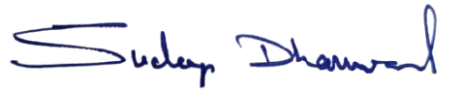 Sudeep Dharwad